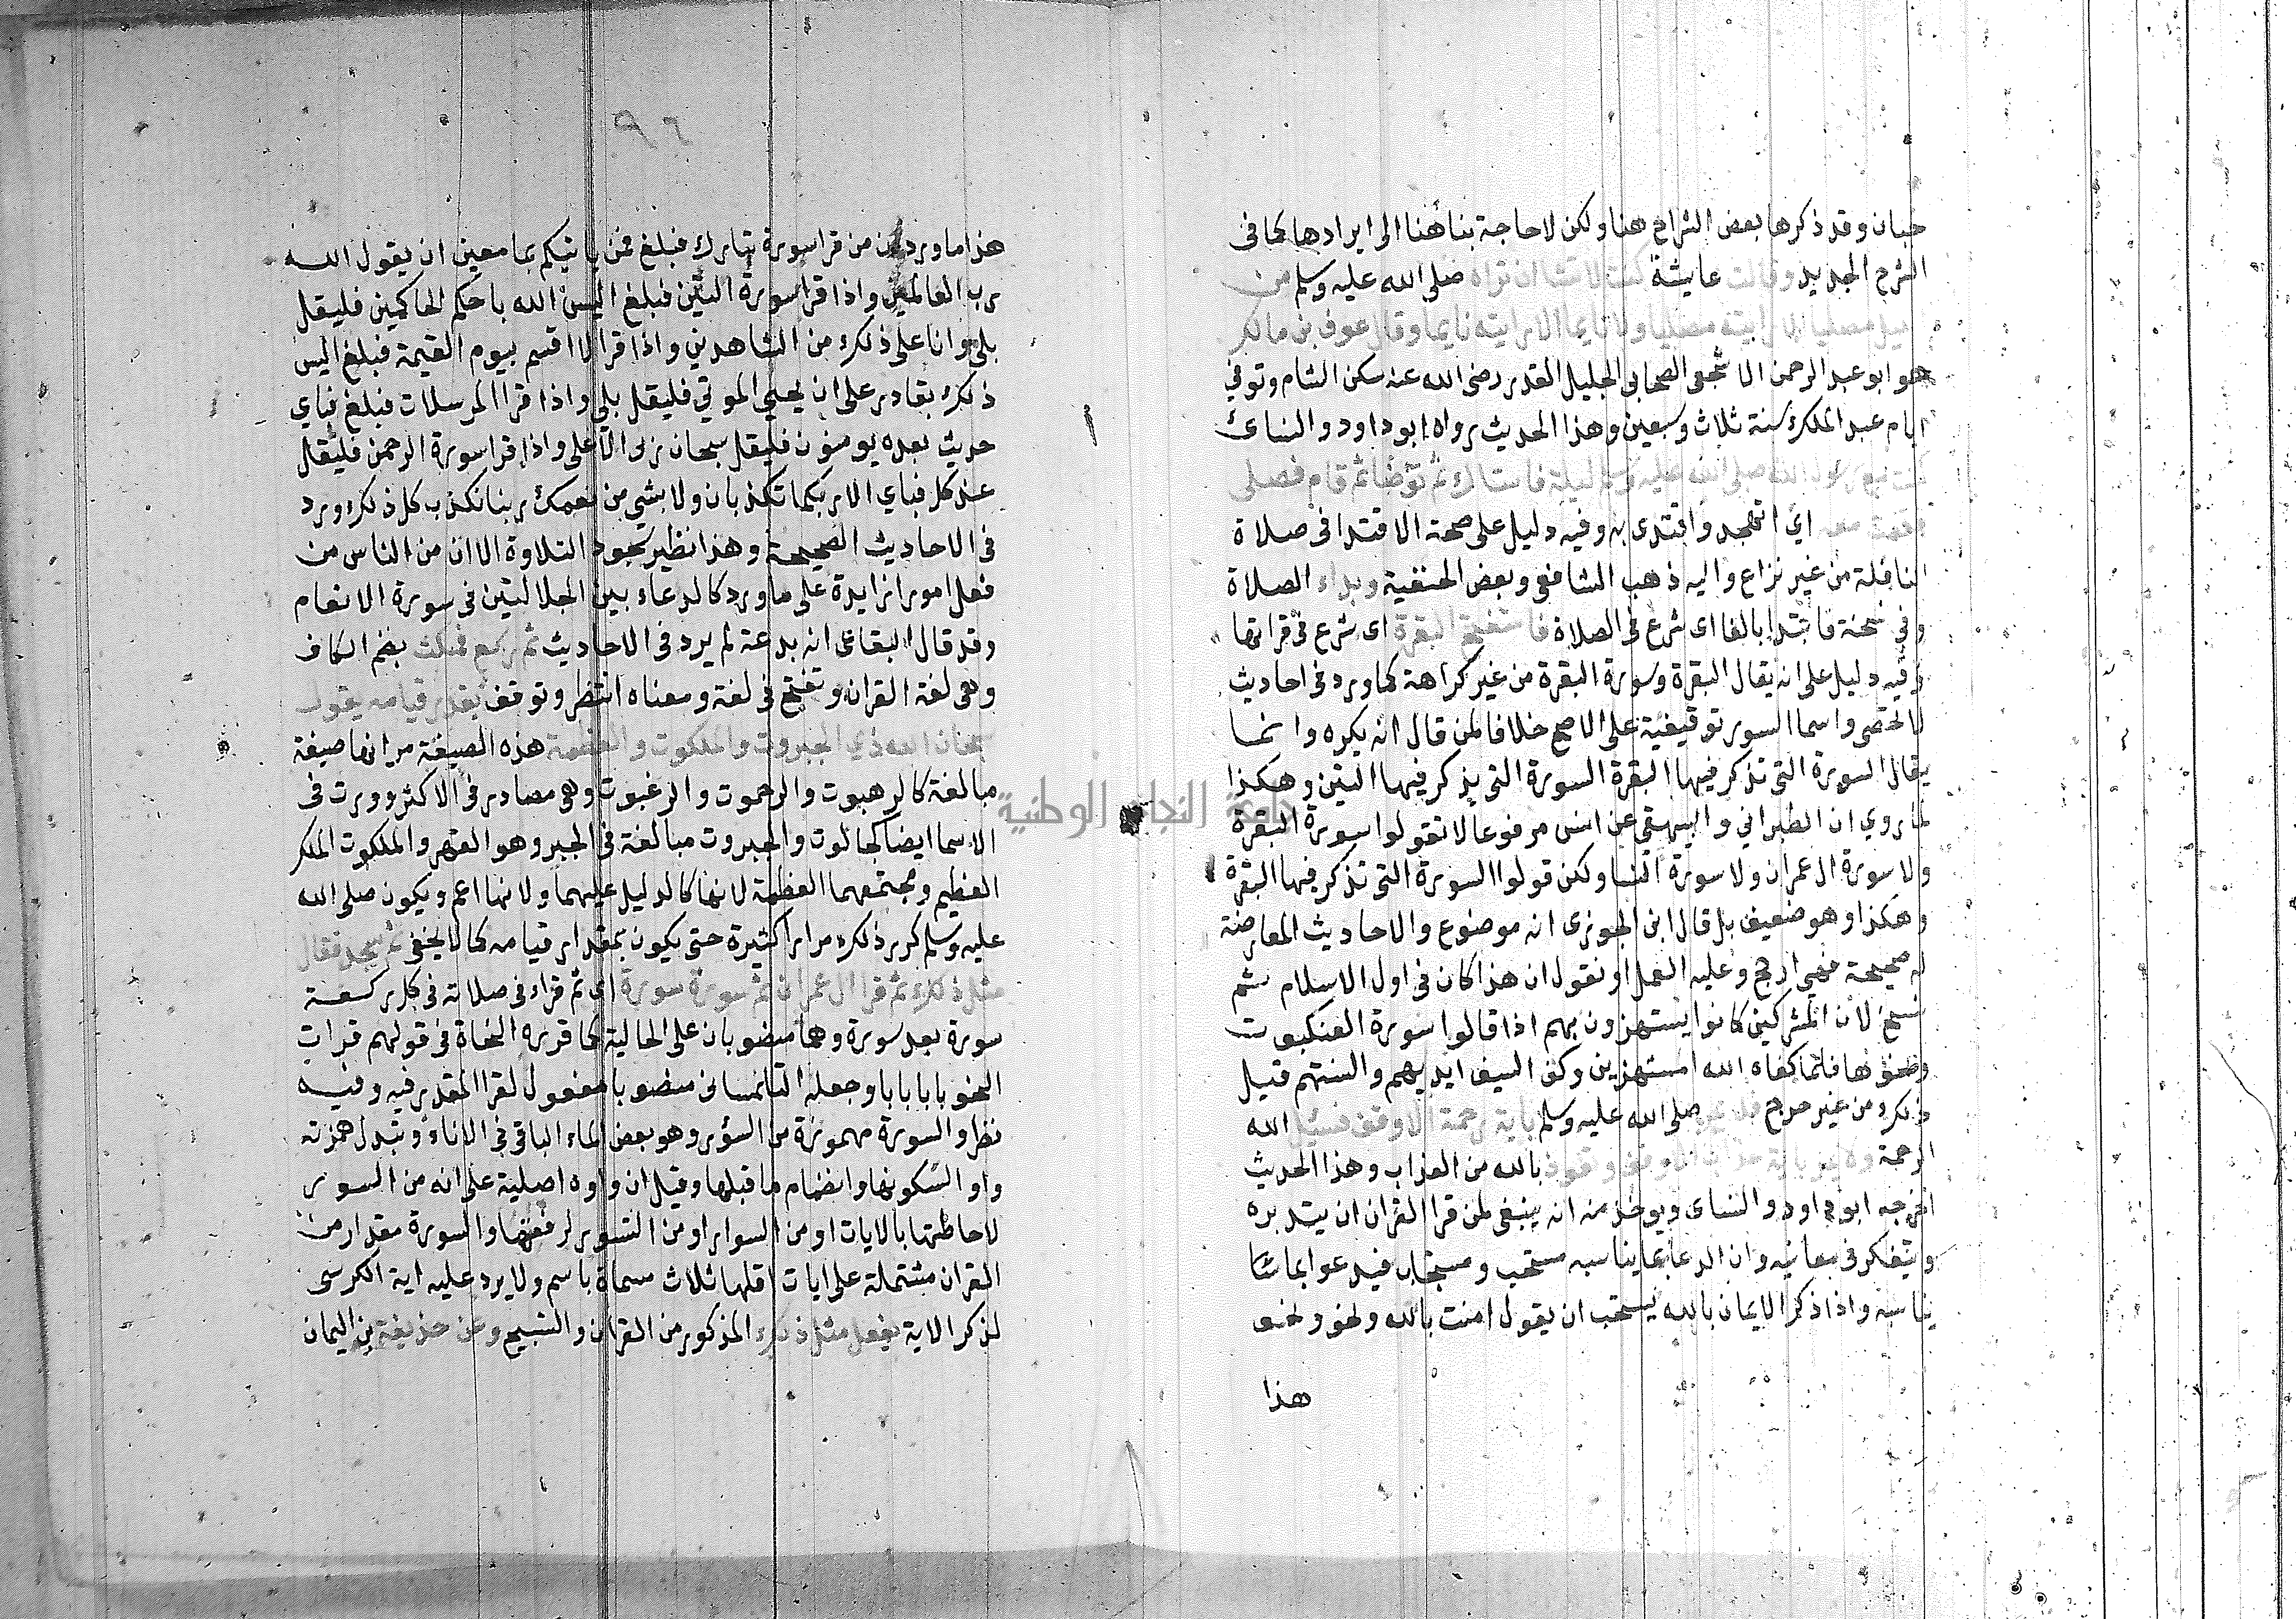 حبان وقد ذكرها بعض الشراح هنا ولكن لا حاجة بنا هنا الى ايرادها كما فى
الشرح الجديد وقالت عايشة كنت لا تشا ان تراه صلى الله عليه وسلم من
الليل مصليا الا رايته مصليا ولا نايما الا رايته نايما وقال عوف بن مالك
هو ابو عبد الرحمن الاشجعى الصحابى الجليل القدر رضى الله عنه سكن الشام وتوفي
ايام عبد الملك سنة ثلاث وسبعين وهذا الحديث رواه ابو داود والنساى
كنت مع رسول الله صلى الله عليه وسلم ليلة فاستاك ثم توضا ثم قام فصلى
فقمت معه اي اتهجد واقتدى به وفيه دليل على صحة الاقتدا فى صلاة
النافلة من غير نزاع واليه ذهب الشافعى وبعض الحنفية وبداء الصلاة
وفي نسخة فابتدا بالفا اى شرع فى الصلاة فاستفتح البقرة اى شرع فى قراتها
وفيه دليل على انه يقال البقرة وسورة البقرة من غير كراهة كما ورد فى احاديث
لا تحصى واسما السور توقيفية على الاصح خلافا لمن قال انه يكره وانما
يقال السورة التى تذكر فيها البقرة السورة التى يذكر فيها التين وهكذا
لما روي ان الطبراني والبيهقى عن انس مرفوعا لا تقولوا سورة البقرة
ولا سورة ال عمران ولا سورة النسا ولكن قولوا السورة التى تذكر فيها البقرة
وهكذا وهو ضعيف بل قال ابن الجوزى انه موضوع والاحاديث المعارضة
له صحيحة فهي ارجح وعليه العمل او نقول ان هذا كان فى اول الاسلام ثم
نسخ لان المشركين كانوا يستهزون بهم اذا قالوا سورة العنكبوت
ونحوها فلما كفاه الله المستهزين وكف السيف ايديهم والسنتهم قيل
ذلك من غير حرج فلا يمر صلى الله عليه وسلم باية رحمة الا وقف فسئل الله
الرحمة ولا يمر باية عذاب الا وقف وتعوذ بالله من العذاب وهذا الحديث
اخرجه ابو داود والنساى ويوخذ منه انه ينبغى لمن قرا القران ان يتدبره
ويتفكر فى معانيه وان الدعا بما يناسبه مستحب ومستجاب فيدعو بما شا
يناسبه واذا ذكر الايمان بالله يستحب ان يقول امنت بالله ونحو ونحو
هذا
٩٦
هذا ما ورد من من قرا سورة تبارك فبلغ فمن ياتيكم بما معين ان يقول الله
رب العالمين واذا قرا سورة التين فبلغ اليس الله باحكم الحاكمين فليقل
بلى وانا على ذلك من الشاهدين واذا قرا لا اقسم بيوم القيمة فبلغ اليس
ذلك بقادر على ان يحيي الموتي فليقل بلي واذا قرا المرسلات فبلغ فباي
حديث بعده يومنون فليقل سبحان ربى الاعلى واذا قرا سورة الرحمن فليقل
عند كل فباي الاء ربكما تكذبان ولا بشي من نعمك ربنا نكذب كل ذلك ورد
فى الاحاديث الصحيحة وهذا نظير سجود التلاوة الا ان من الناس من
فعل امورا زايدة على ما ورد كالدعاء بين الجلالتين فى سورة الانعام
وقد قال البقاعى انه بدعة لم يرد فى الاحاديث ثم ركع فمكث بضم الكاف
وهى لغة القران وتفتح فى لغة ومعناه انتظر وتوقف بقدر قيامه يقول
سبحان الله ذي الجبروت والملكوت والعظمة هذه الصيغة مر انها صيغة
مبالغة كالرهبوت والرحموت والرغبوت وهى مصادر فى الاكثر ووردت فى
الاسما ايضا كجالوت والجبروت مبالغة فى الجبر وهو القهر والملكوت الملك
العظيم ومجتمعهما العظمة لانها كالدليل عليهما ولانها اعم ويكون صلى الله
عليه وسلم كرر ذلك مرارا كثيرة حتى يكون بمقدار قيامه كما لا يخفى ثم سجد فقال
مثل ذلك ثم قرا ال عمران ثم سورة سورة اى ثم قراء فى صلاته فى كل ركعة
سورة بعد سورة وهما منصوبان على الحالية كما قرره النحاة فى قولهم قرات
النحو بابا بابا وجعله التلمسانى منصوبا مفعول لقرا المقدر فيه وفيه
نظر والسورة مهموزة من السؤر وهو بعض الماء الباقى فى الاناء وتبدل همزته
واوا لسكونها وانضمام ما قبلها وقيل ان واوه اصلية على انه من السور
لاحاطتها بالايات او من السوار او من التسور لرفعتها والسورة مقدار من
القران مشتملة على ايات اقلها ثلاث مسماة باسم ولا يرد عليه اية الكرسى
لذكر الاية يفعل مثل ذلك المذكور من القران والتسبيح وعن حذيفة بن اليمان
جامعة النجاح الوطنية